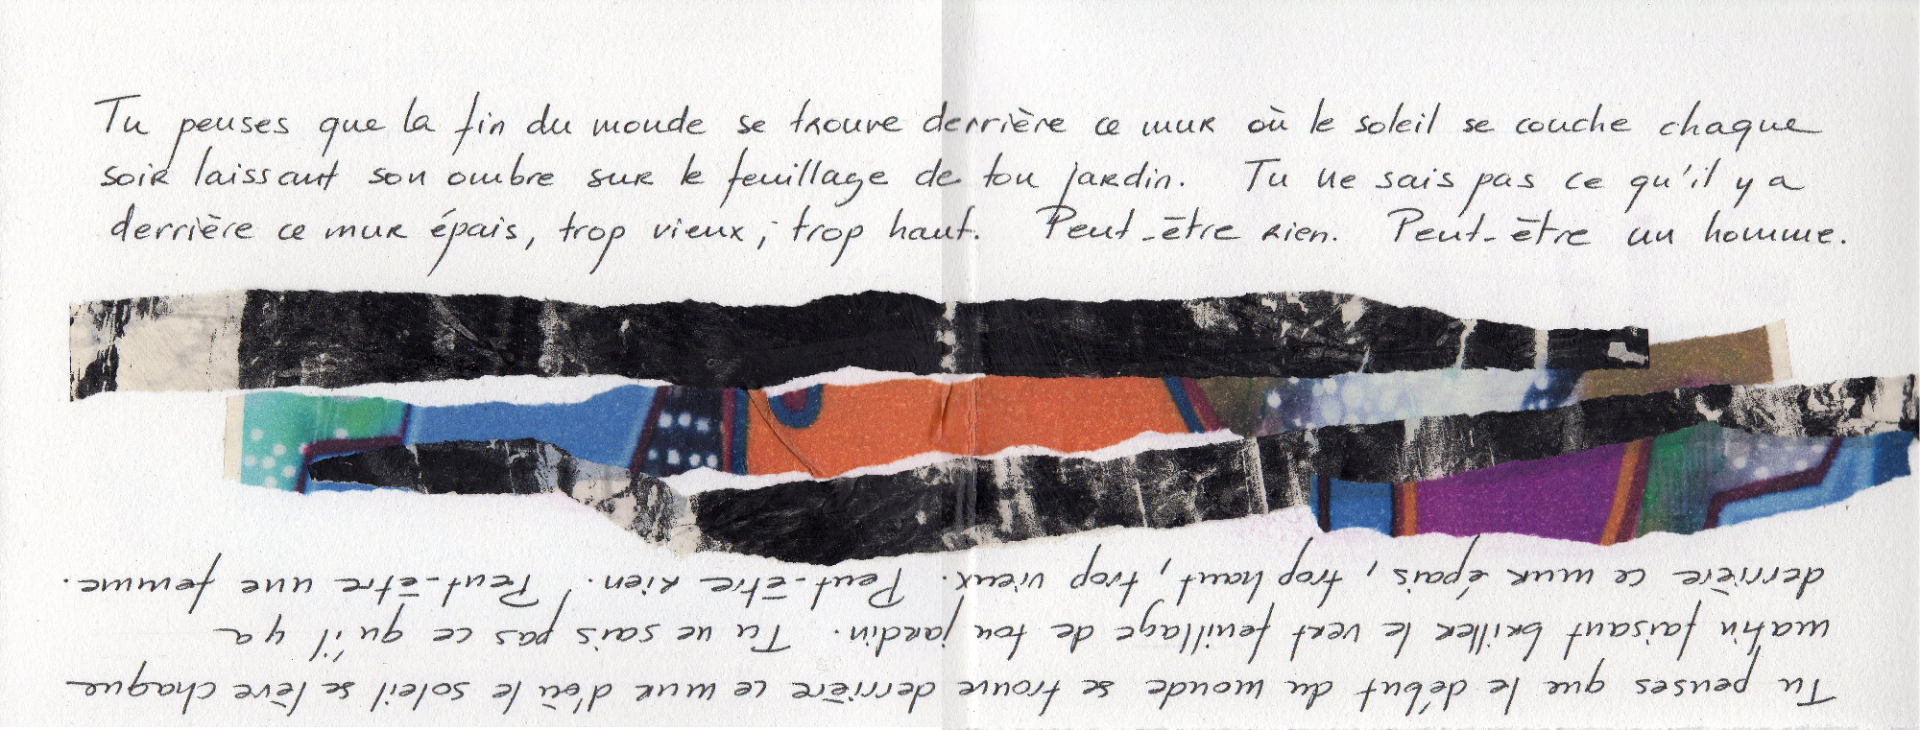 Tu penses que la fin du monde se trouve derrière ce mur où le soleil se couche chaque
soir laissant son ombre sur le feuillage de ton jardin. Tu ne sais pas ce qu'il y a
derrière ce mur épais, trop vieux, trop haut. Peut-être rien. Peut-être un homme.
Tu penses que le début du monde se trouve derrière ce mur d'où le soleil se lève chaque
matin faisant briller le vert feuillage de ton jardin. Tu ne sais pas ce qu'il y a
derrière ce mur épais, trop haut, trop vieux. Peut-être rien. Peut-être une femme.